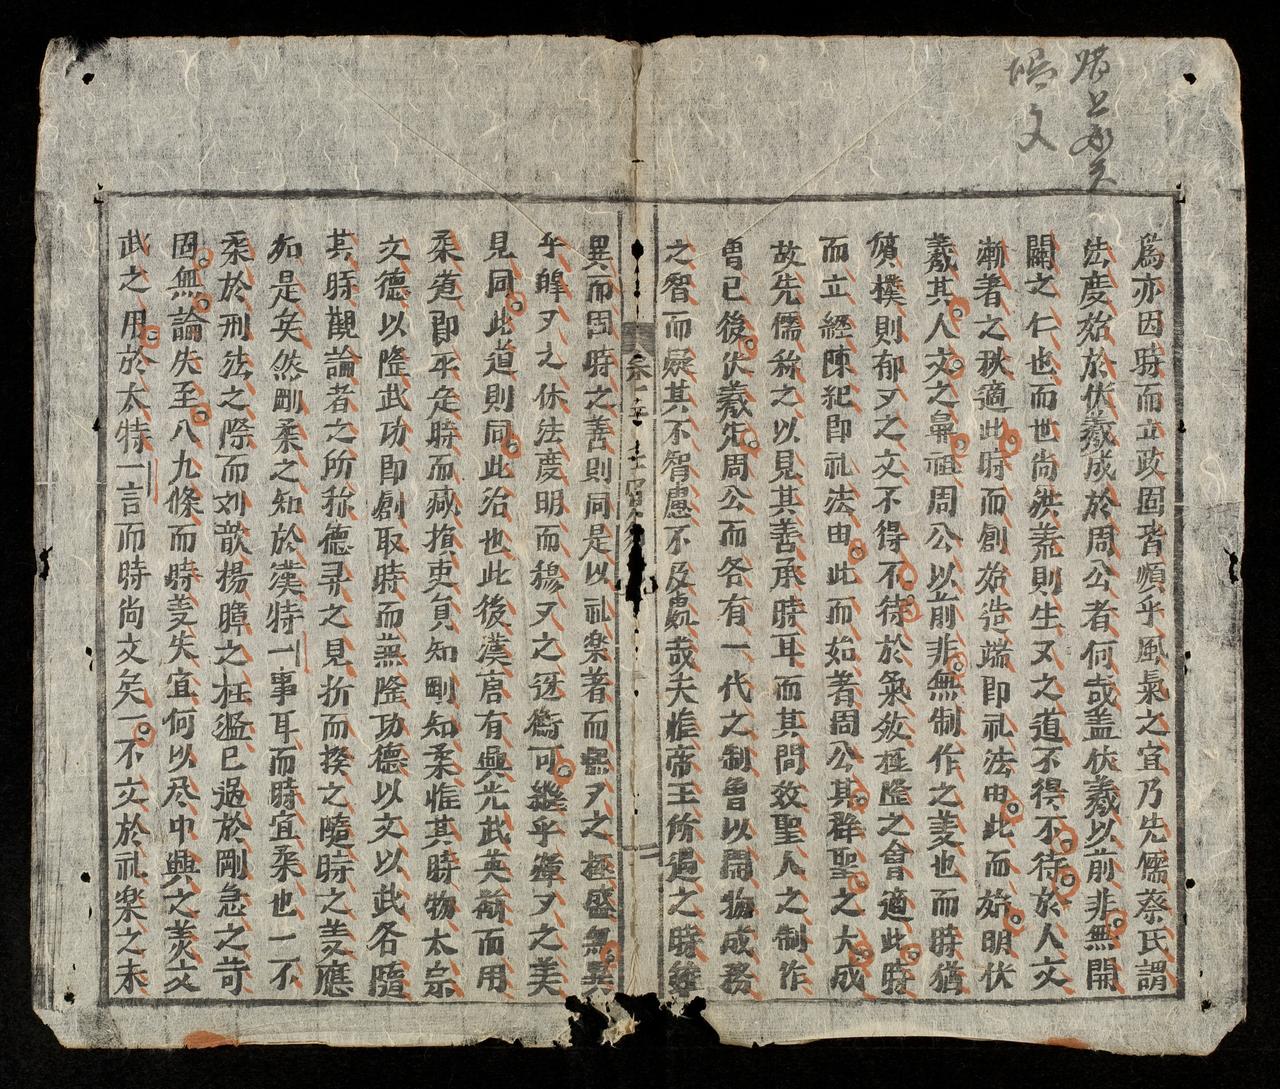 為亦因時而立政固皆順乎風氣之宜乃先儒蔡氏謂
法度始於伏羲成於周公者何哉盖伏羲以前非無開
闢之仁也而世尚洪荒則生又之道不得不待於人文
漸著之秋適此時而創始造端即礼法由此而始明伏
羲其人文之鼻祖周公以前非無制作之美也而時猶
質樸則郁又之文不得不待於氣敘極隆之會適此時
而立經陳紀即礼法由此而始著周公其群聖之大成
故先儒称之以見其善承時耳而其間效聖人之制作
曽已後伏羲先周公而各有一代之制曽以開物成務
之智而疑其不智慮不及處哉夫惟帝王所遇之時雖
異而因時之善則同是以礼楽著而熙又之極盛無異
乎皥又之休法度明而穆又之迓衡可継乎渾又之美
見同此道則同此治也此後漢唐有興光武英裔而用
柔道即平定時而減損吏員知剛知柔惟其時物太宗
文德以隆武功即創取時而無隆功德以文以武各隨
其時觀論者之所称德尋之見折而揆之隨時之美應
如是矣然剛柔之知於漢特一事耳而時宜柔也一不
柔於刑法之際而刘歆揚暲之枉濫已過於剛急之苛
固無論失至八九條而時美失宜何以尽中興之美文
武之用於太特一言而時尚文矣一不文於礼楽之未